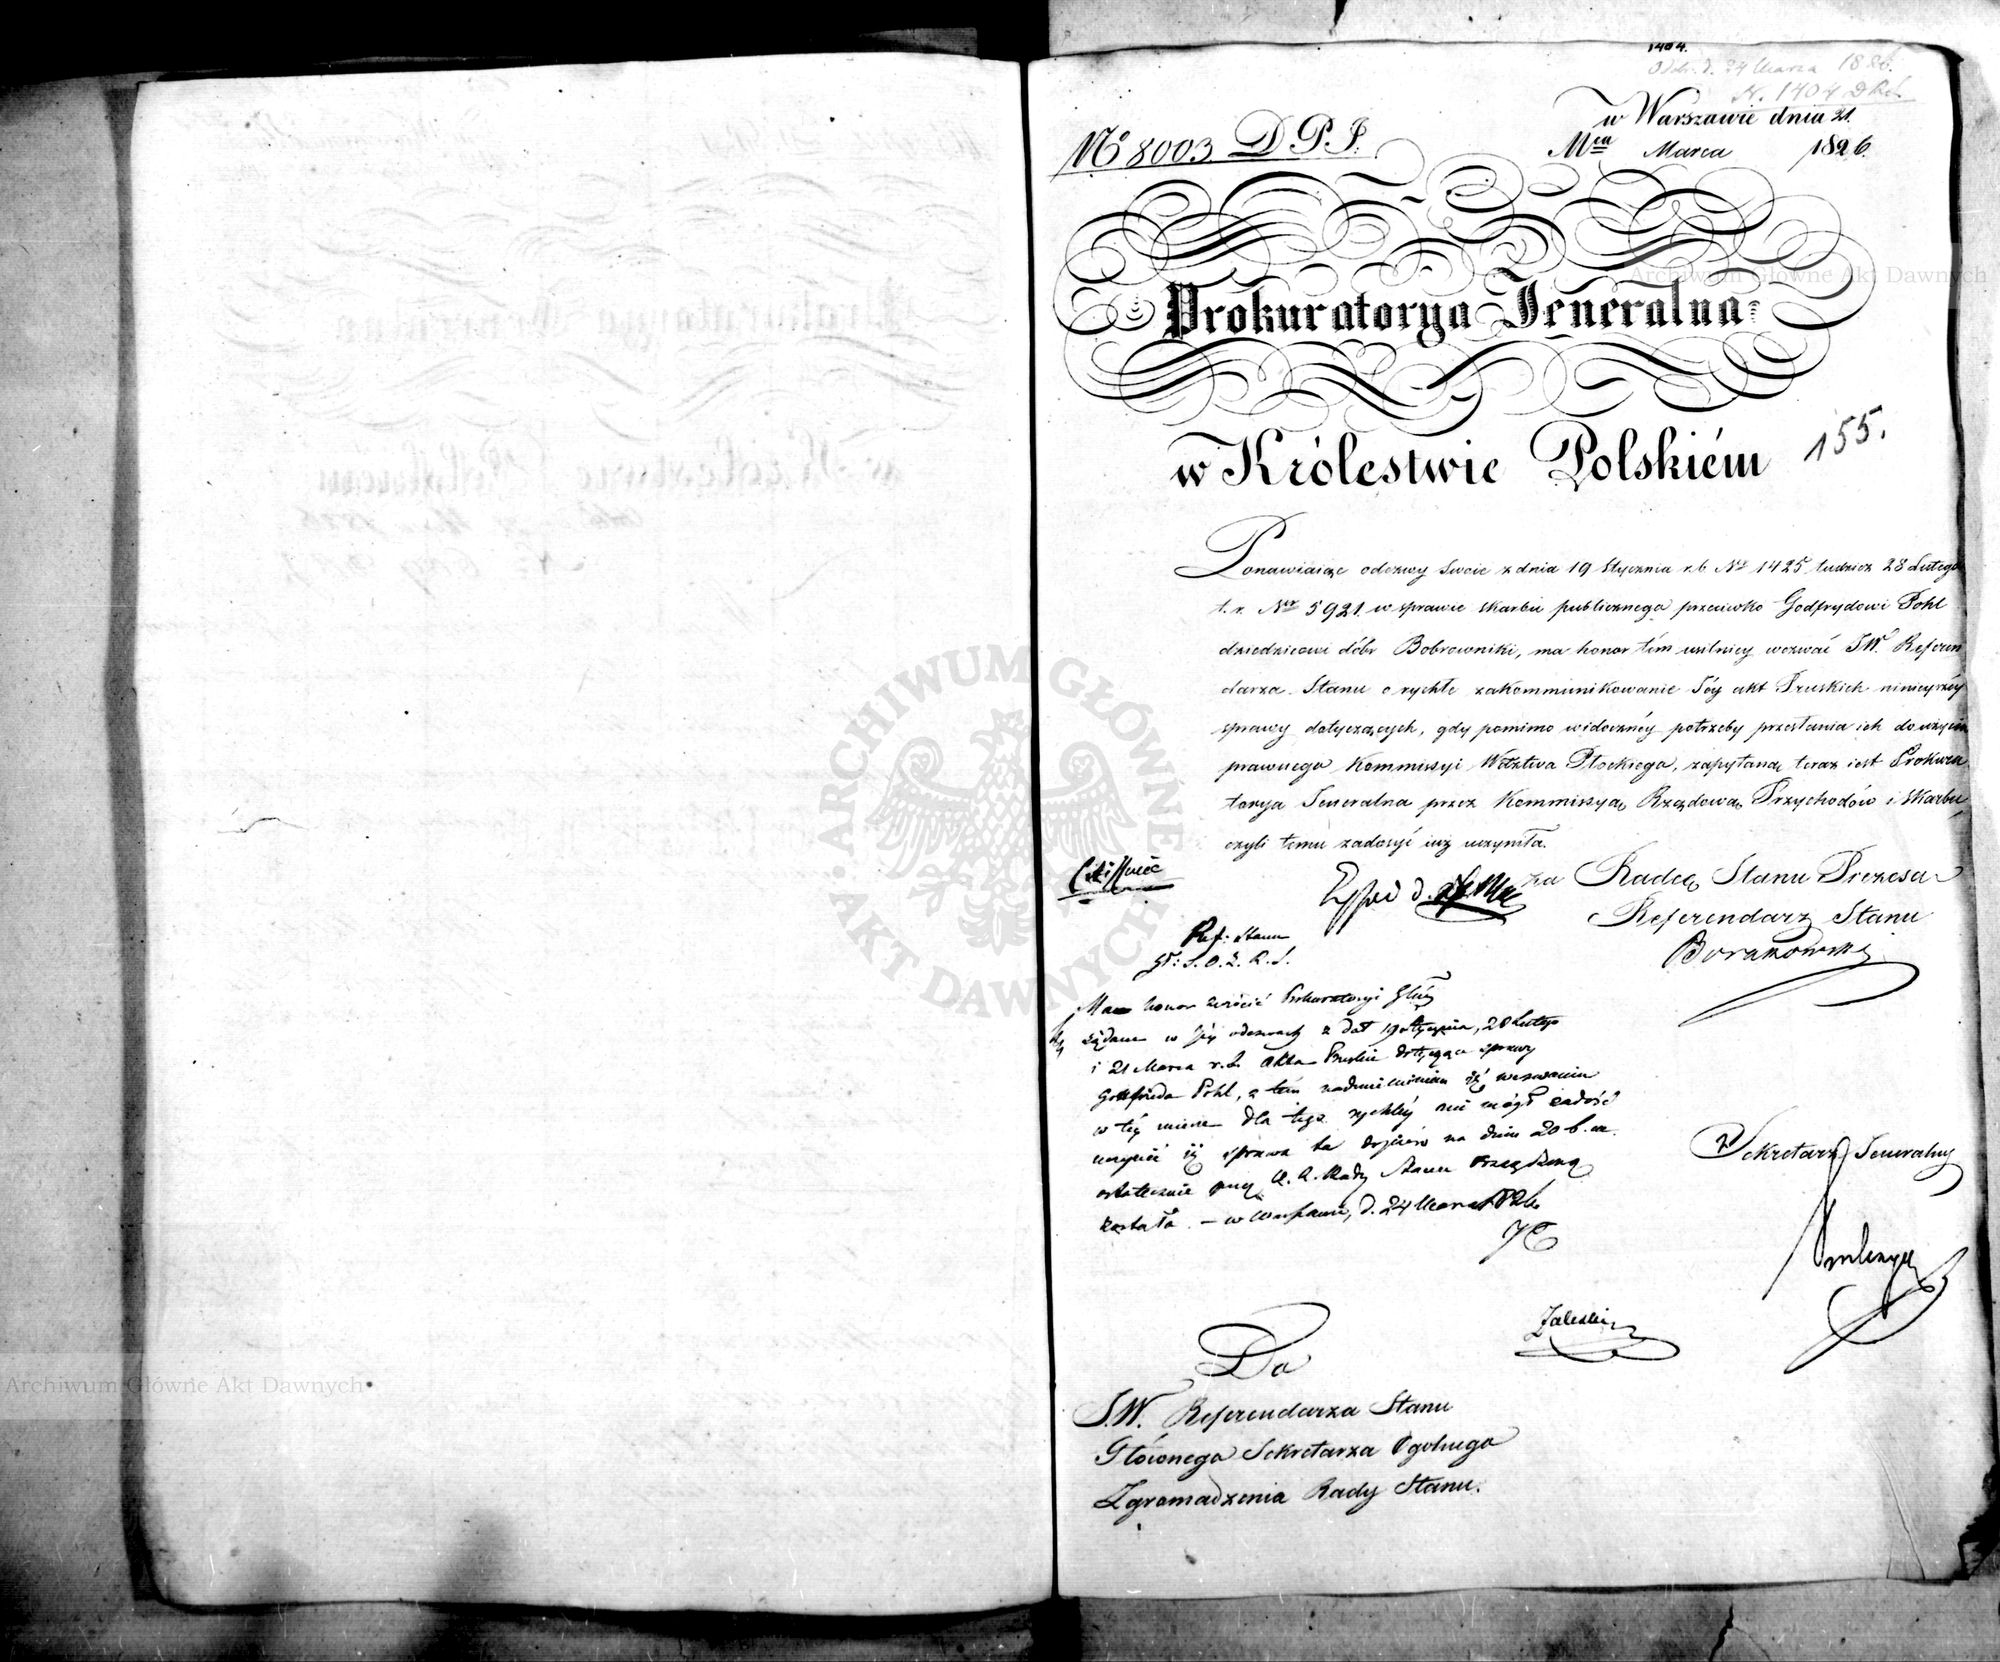 1404.
Odb. d. 24 Marca 1826.
N. 1404 D R S.
w Warszawie dnia 21.
No 8003 D P J.
Mca Marca 1826.
Prokuratorya Jeneralna
w Królestwie Polskiém
155.
Ponawiaiąc odezwy swoie z dnia 19 Stycznia r. b. Nr 1425 tudzież 28 Lutego
t. r. Nr 5921 w sprawie skarbu publicznego przeciwko Godfrydowi Pohl
dziedzicowi dóbr Bobrowniki, ma honor tém usilniey wezwać JW. Referen
darza Stanu o rychłe zakommunikowanie Jéy akt Pruskich ninieyszéy
sprawy dotyczących, gdy pomimo widocznéy potrzeby przesłania ich do użycia
prawnego Kommissyi Wdztwa Płockiego, zapytaną teraz iest Prokura
torya Jeneralna przez Kommissyą Rządową Przychodów i Skarbu,
czyli temu zadosyć iuż uczyniła.
za Radcę Stanu Prezesa
Referendarz Stanu
Ref: Stanu
Gł: S. O. Z. R. S.
Mam honor zwrócić Prokuratoryi Głney
żądane w Jéy odezwach z dat 19 Stycznia, 28 Lutego
i 21 Marca r. b. Akta Pruskie dotyczące sprawy
Gottfrieda Pohl, z tém nadmienieniem iż wezwaniu
w téy mierze dla tego rychléy nie mógł zadość
uczynić iż sprawa ta dopiero na dniu 20 b. m.
ostatecznie przez Radę Stanu
została. – w Warszawie, d. 24 Marca 1826.
Sekretarz Jeneralny
Zaleski
Do
J.W. Referendarza Stanu
Głównego Sekretarza Ogolnego
Zgromadzenia Rady Stanu.
ARCHIWUM GŁÓWNE
AKT DAWNYCH
Archiwum Główne Akt Dawnych
Archiwum Główne Akt Dawnych